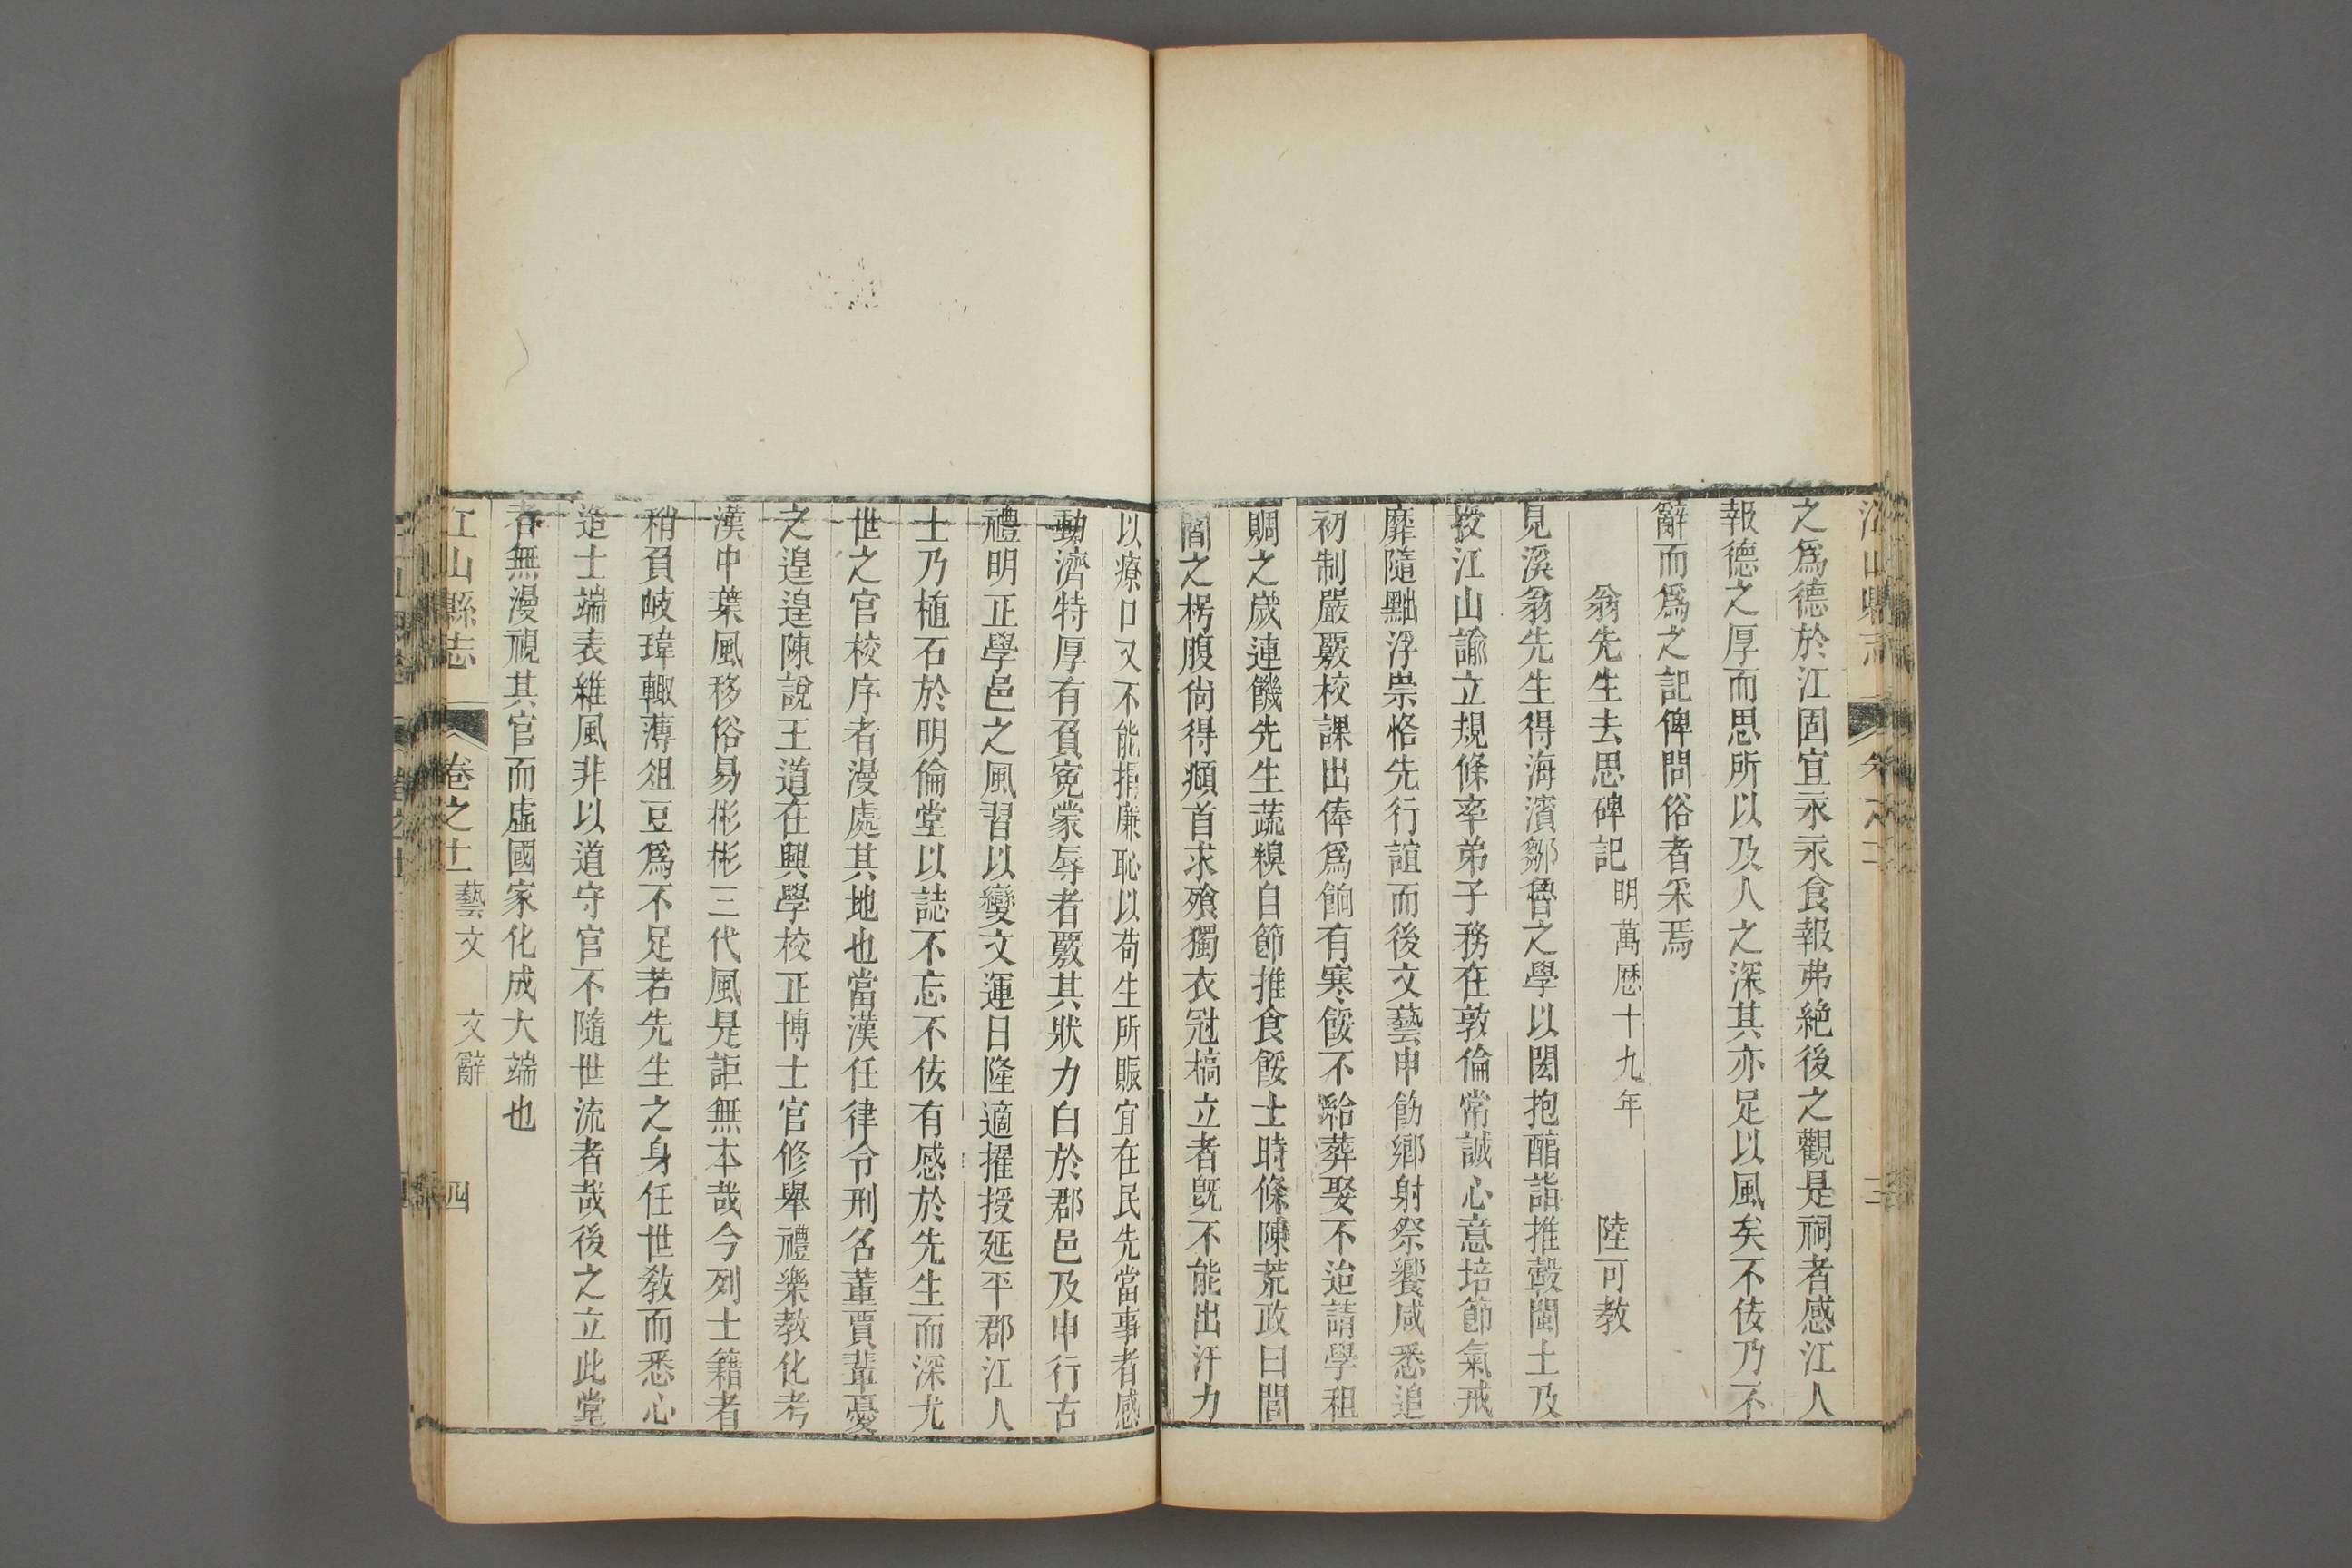 之爲德於江固宜永永食報弗絶後之觀是祠者感江人
報德之厚而思所以及人之深其亦足以風矣不佞乃不
辭而爲之記俾問俗者采焉
翁先生去思碑記 明萬歴十九年 陸可教
見溪翁先生得海濱鄒魯之學以閎抱醞詣推轂閩士及
授江山諭立規條率弟子務在敦倫常誠心意培節氣戒
靡隨黜浮崇恪先行誼而後文藝申飭鄉射祭饗咸悉追
初制嚴覈校課出俸爲餉有寒餒不給葬娶不迨請學租
賙之歲連饑先生蔬糗自節推食餒士時條陳荒政曰閭
閻之枵腹尙得頫首求飱獨衣冠槁立者旣不能出汗力
以療口又不能捐廉恥以苟生所賑宜在民先當事者感
動濟特厚有負寃蒙辱者覈其狀力白於郡邑及申行古
禮明正學邑之風習以變文運日隆適擢授延平郡江人
士乃植石於明倫堂以誌不忘不佞有感於先生而深尤
世之官校序者漫處其地也當漢任律令刑名董賈輩憂
之遑遑陳說王道在興學校正博士官修舉禮樂教化考
漢中葉風移俗易彬彬三代風是詎無本哉今列士籍者
稍負岐瑋輙薄俎豆爲不足若先生之身任世敎而悉心
造士端表維風非以道守官不隨世流者哉後之立此堂
者無漫視其官而虛國家化成大端也
江山縣志 卷之十一 藝文 文辭 四